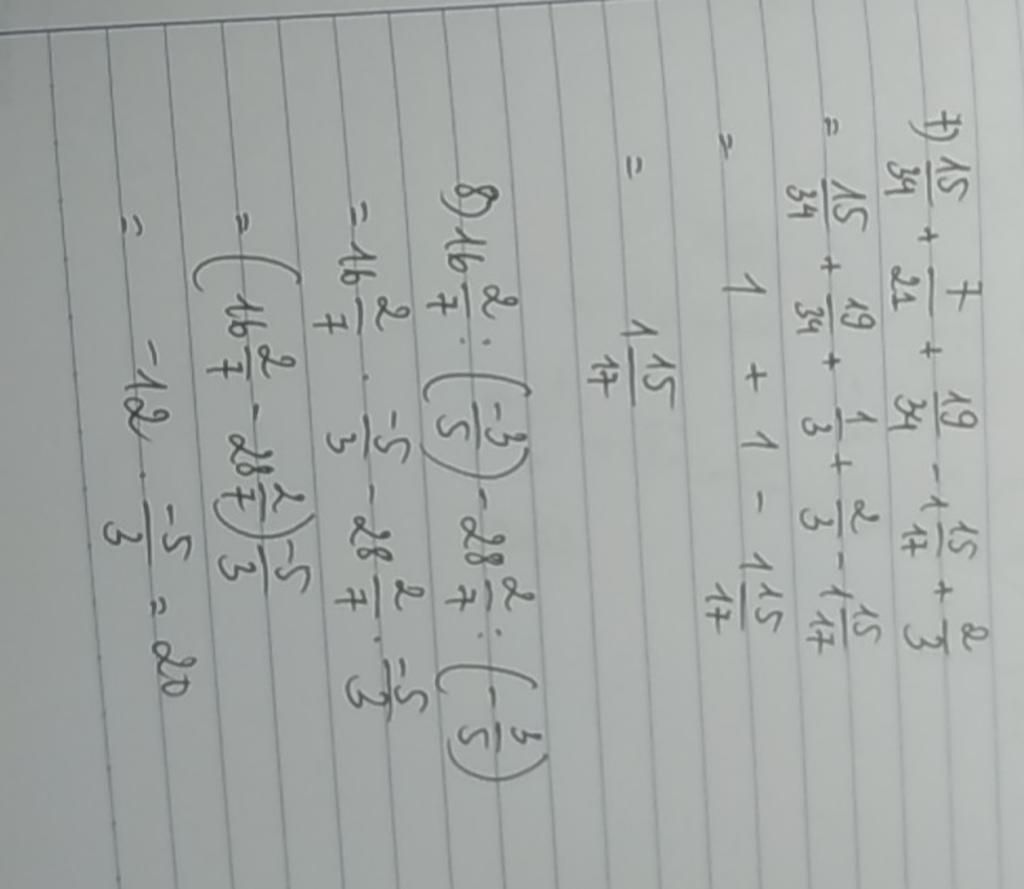 7) 15/34 + 7/21 + 19/34 - 1 15/17 + 2/3
= 15/34 + 19/34 + 1/3 + 2/3 - 1 15/17
= 1 + 1 - 1 15/17
= 1 15/17
8) 16 2/7 : (-3/5) - 28 2/7 : (-3/5)
= 16 2/7 . -5/3 - 28 2/7 . -5/3
= (16 2/7 - 28 2/7) -5/3
= -12 . -5/3 = 20